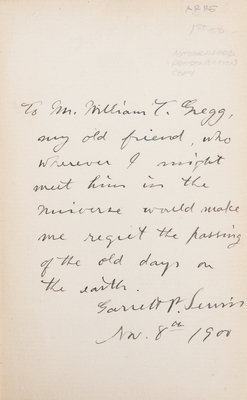 RARE
1st ed.
AUTOGRAPHED
PRESENTATION
COPY
To Mr. William T. Gregg,
my old friend, who
wherever I might
meet him in the
Universe would make
me regret the passing
of the old days on
the earth.
Garrett P. Serviss
Nov. 8th 1900